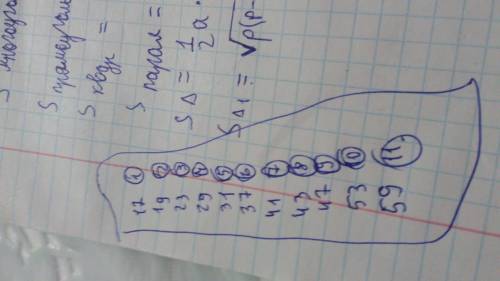 S многоуго
S прямоугол
S квадр =
S парал =
S Δ = 1/2 a ·
S Δ1 = √p(p-
17 ①
19 ②
23 ③
29 ④
31 ⑤
37 ⑥
41 ⑦
43 ⑧
47 ⑨
53 ⑩
59 ⑪